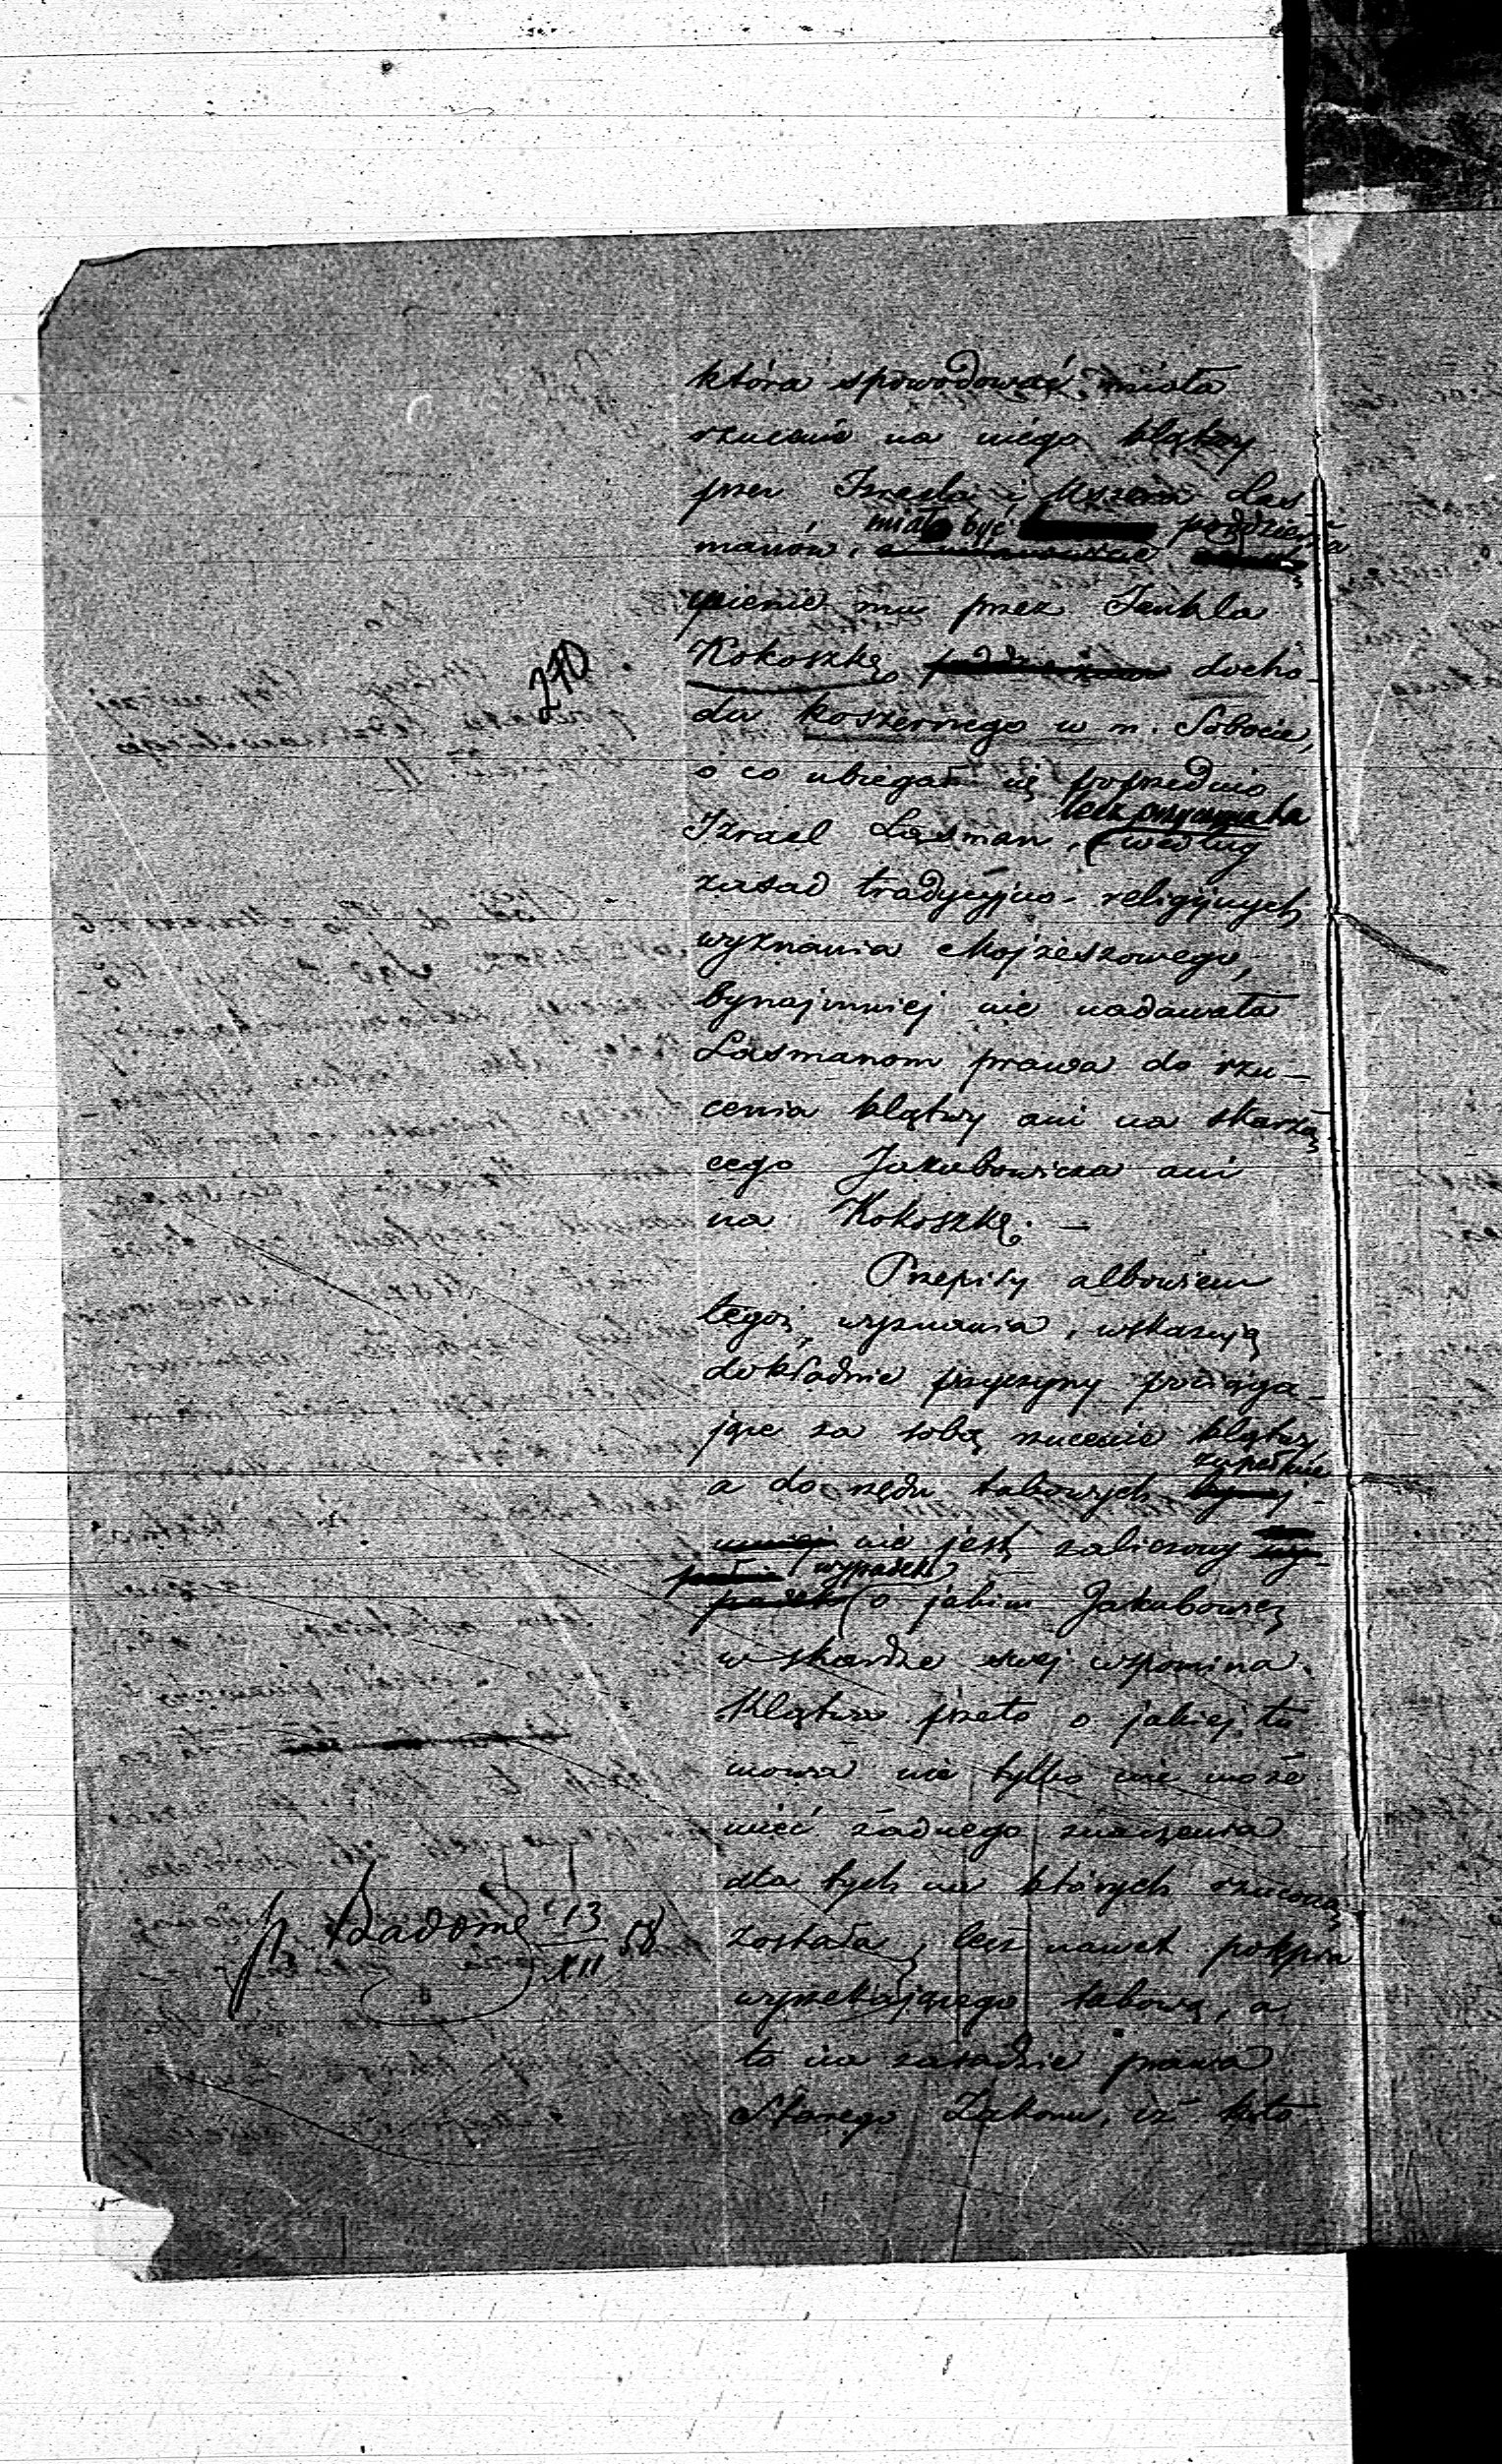 która spowodować miała
rzucenie na niego klątwy
przez Izraela i Moszera Las
miało być podzierża
manów,
wienie mu przez Jankla
Kokoszkę docho-
270
du koszernego w m. Sobocie,
o co ubiegał się poprzednio
lecz przyczyna ta
Izrael Lasman, według
zasad tradycyjno-religijnych
wyznania Mojżeszowego,
bynajmniej nie nadawała
Lasmanom prawa do rzu-
cenia klątwy ani na skarżą
cego Jakubowicza ani
na Kokoszkę. —
Przepisy albowiem
tegoż wyznania, wskazują
dokładnie przyczyny pociąga-
jące za sobą rzucenie klątwy,
zupełnie
a do rzędu takowych
nie jest zaliczony
wypadek
o jakim Jakubowicz
w skardze swej wspomina.
Klątwa przeto o jakiej tu
mowa nie tylko nie może
mieć żadnego znaczenia
dla tych na których rzuconą
13
XII 58
została, lecz nawet potępia
wyrzekającego takową, a
to na zasadzie prawa
Starego Zakonu, iż kto